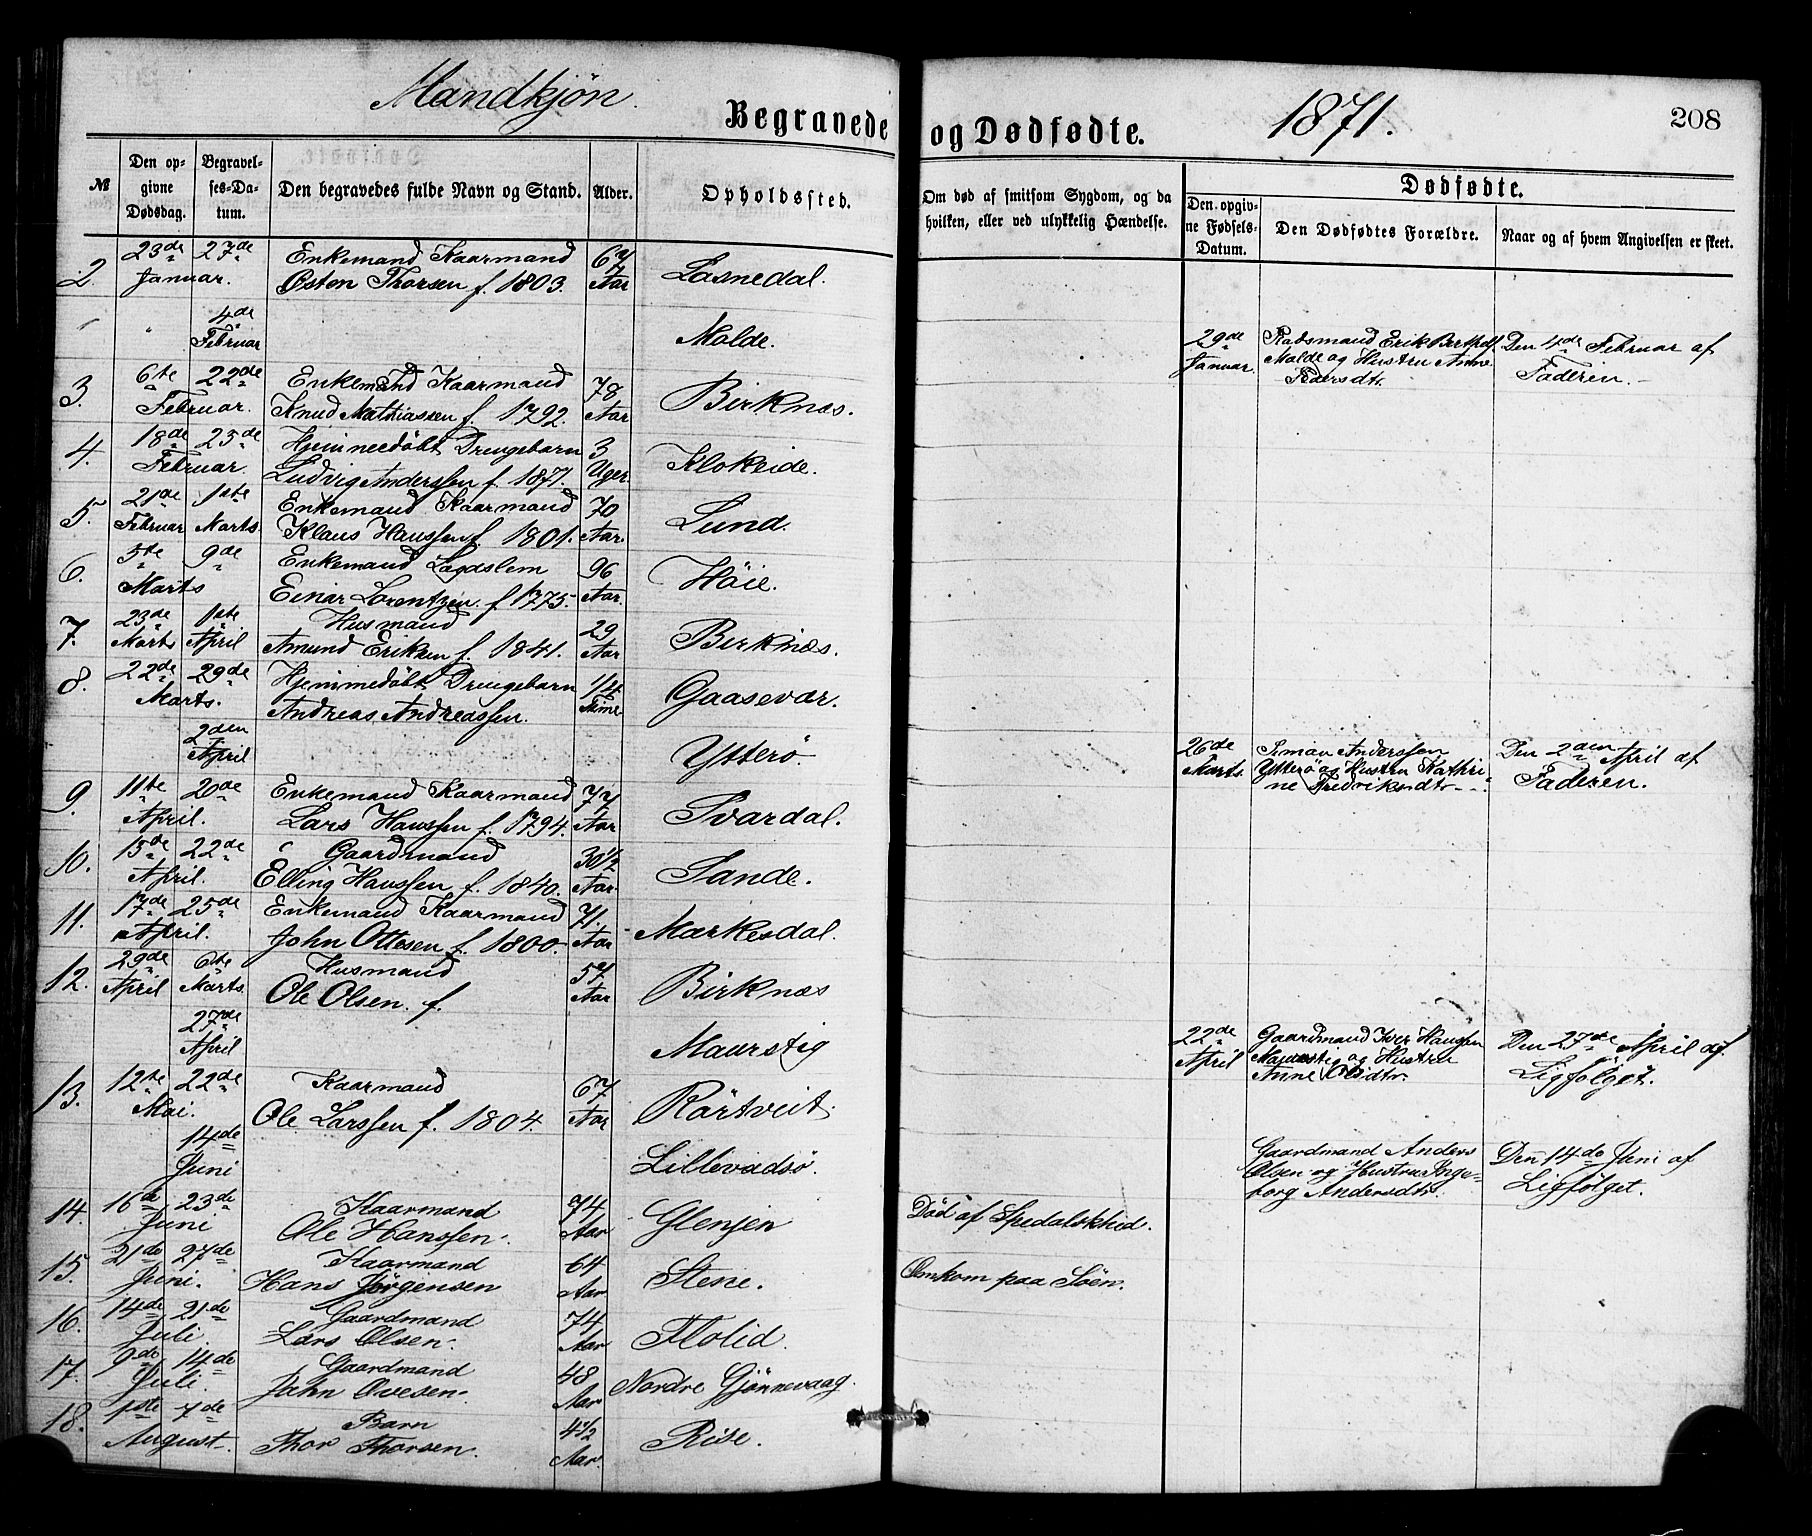 Mandkjøn.
Begravede og Dødfødte. 1871. 208
№
Den opgivne Dødsdag.
Begravelses-Datum.
Den begravedes fulde Navn og Stand.
Alder.
Opholdssted.
Om død af smitsom Sygdom, og da hvilken, eller ved ulykkelig Hændelse.
Dødfødte.
Den opgivne Fødsels-Datum.
Den Dødfødtes Forældre.
Naar og af hvem Angivelsen er skeet.
2. 23de 27de Enkemand Kaarmand 67
Januar. Østen Thorsen f. 1803. Aar Lasnedal.
" 4de Februar Molde. 29de Januar Erik Berthelf. Molde og Hustru Anne Pedersdtr. Den 4de Februar af Faderen.
3. 6te 22de Enkemand Kaarmand 78
Februar. Knud Mathiassen f. 1792. Aar Birknæs.
4. 18de 25de Hjemmedøbt Drengebarn 3
Februar. Ludvig Anderssen f. 1871. Uger Klokeide.
5. 21de 1ste Enkemand Kaarmand 70
Februar Marts. Klaus Hanssen f. 1801. Aar. Lund.
6. 5te 9de Enkemand Lægdslem 96
Marts Einar Lorentzen. f 1775. Aar. Höie.
7. 23de 1ste Husmand 29
Marts April Amund Eriksen f. 1841. Aar Birknæs.
8. 22de 29de Hjemmedøbt Drengebarn 1/4
Marts. Andreas Andreassen. Time Gaasevær.
2den April Ytterö. 26de Marts. Simon Anderssen Ytterö og Hustru Kathrine Fredriksdtr. Den 2den April af Faderen.
9. 11te 20de Enkemand Kaarmand 77
April. Lars Hanssen f. 1794. Aar Svardal.
10. 15de 22de Gaardmand 30 1/2
April. Elling Hanssen f. 1840. Aar. Sande.
11. 17de 25de Enkemand Kaarmand 71.
April. John Ottesen f. 1800. Aar Markesdal.
12. 29de 6te Husmand 57
April Marts Ole Olsen. f. Aar Birknæs
27de April Maurstig 22de April Gaardmand Iver Hanssen Maurstig og Hustru Anne Den 27de April af Ligfølget.
13. 12te 22de Kaarmand 67
Mai. Ole Larssen f. 1804. Aar Rörtveit.
14de Juni Lillevadsö. Gaardmand Anders Olsen og Hustru Ingeborg Andersdtr. Den 14de Juni af Ligfølget.
14. 16de 23de Kaarmand 74
Juni Ole Hanssen. Aar Glenjen Död af Spedalskhed.
15. 21de 27de Kaarmand 64
Juni. Hans Jørgensen Aar Stene. Omkom paa Söen.
16. 14de 21de Gaardmand 74
Juli. Lars Olsen. Aar Flolid.
17. 9de 14de Gaardmand 48
Juli. John Ovesen. Aar Nordre Gjönnevaag.
18. 1ste 7de Barn 4 1/2
August. Thor Thorsen. Aar. Rise.